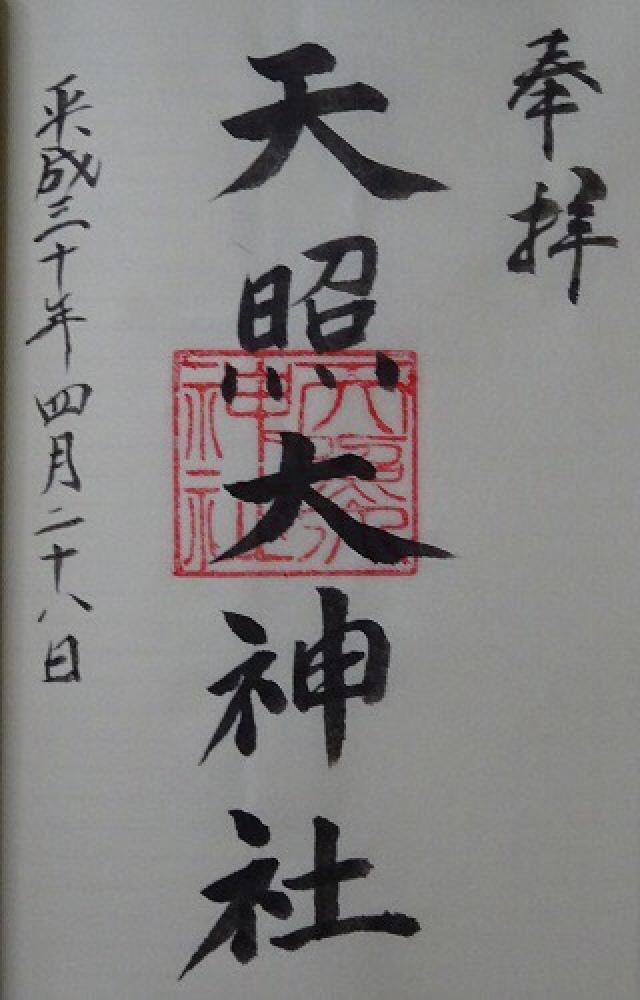 奉拝
天照大神社
平成三十年四月二十八日